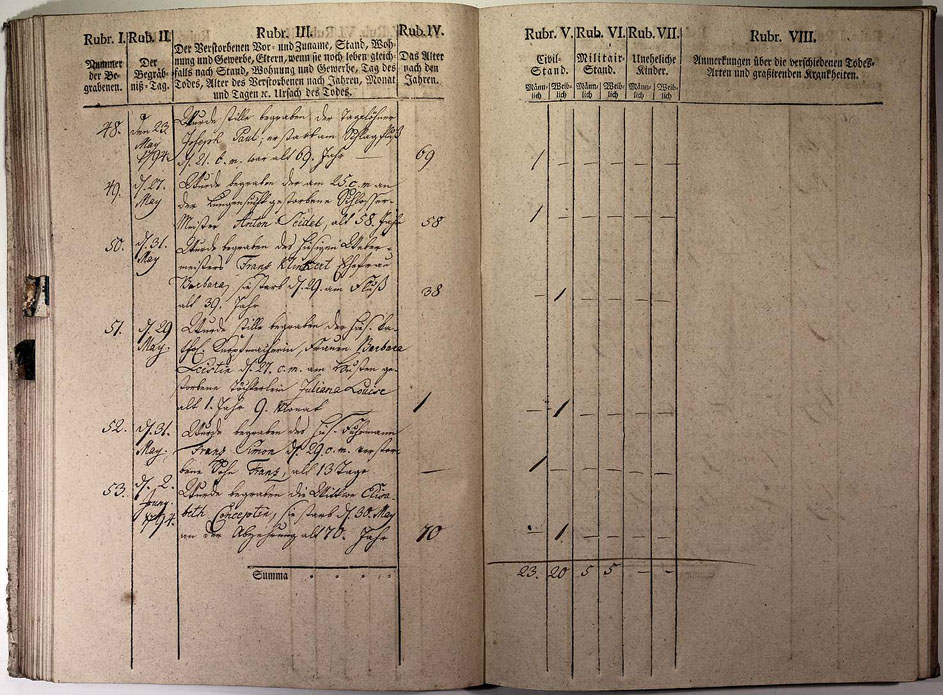 Rubr. I. Rub. II. Rubr. III. Rub. IV.
Nummer der Begrabenen.
Der Begräbniß-Tag.
Der Verstorbenen Vor- und Zuname, Stand, Wohnung
und Gewerbe, Eltern, wenn sie noch leben gleichfalls
nach Stand, Wohnung und Gewerbe, Tag des
Todes, Alter des Verstorbenen nach Jahren, Monat
und Tagen ꝛc. Ursach des Todes.
Das Alter nach den Jahren.
48. den 23. Wurde stille begraben der Tagelöhner
May Joseph Paul; er starb am Schlagfluß
1794 d. 21. c. m. war alt 69. Jahr — 69
49. d. 27. Wurde begraben der am 25. c. m. an
May der Lungensucht gestorbene Schlosser-
Meister Anton Seidel, alt 58. Jahr 58
50. d. 31. Wurde begraben des hiesigen Weber-
May meisters Franz Klinkert Ehefrau
Barbara, sie starb d. 29. am Fluß
alt 39. Jahr 38
51. d. 29 Wurde stille begraben der
May. Frauen Barbara
d. 27. c. m. am Husten ge-
storbene Töchterlein Juliana Louise
alt 1. Jahr 9. Monat 1
52. d. 31. Wurde begraben des Fuhrmann
May. Franz Simon d. 29 c. m. verstor-
bene Sohn Franz, alt 13 Tage —
53. d. 2. Wurde begraben die Wittwe Elisa-
Juny. beth Conceptin, sie starb d. 30. May
1794. an der Abzehrung alt 70. Jahr 70
Summa
Rubr. V. Rub. VI. Rub. VII. Rubr. VIII.
Civil-Stand. Militair-Stand. Uneheliche Kinder. Anmerkungen über die verschiedenen Todes-
Arten und grassirenden Krankheiten.
Männlich Weiblich Männlich Weiblich Männlich Weiblich
1 – – – – –
1 – – – – –
– 1 – – – –
– 1 – – – –
1 – – – – –
– 1 – – – –
23. 20 5 5 – –